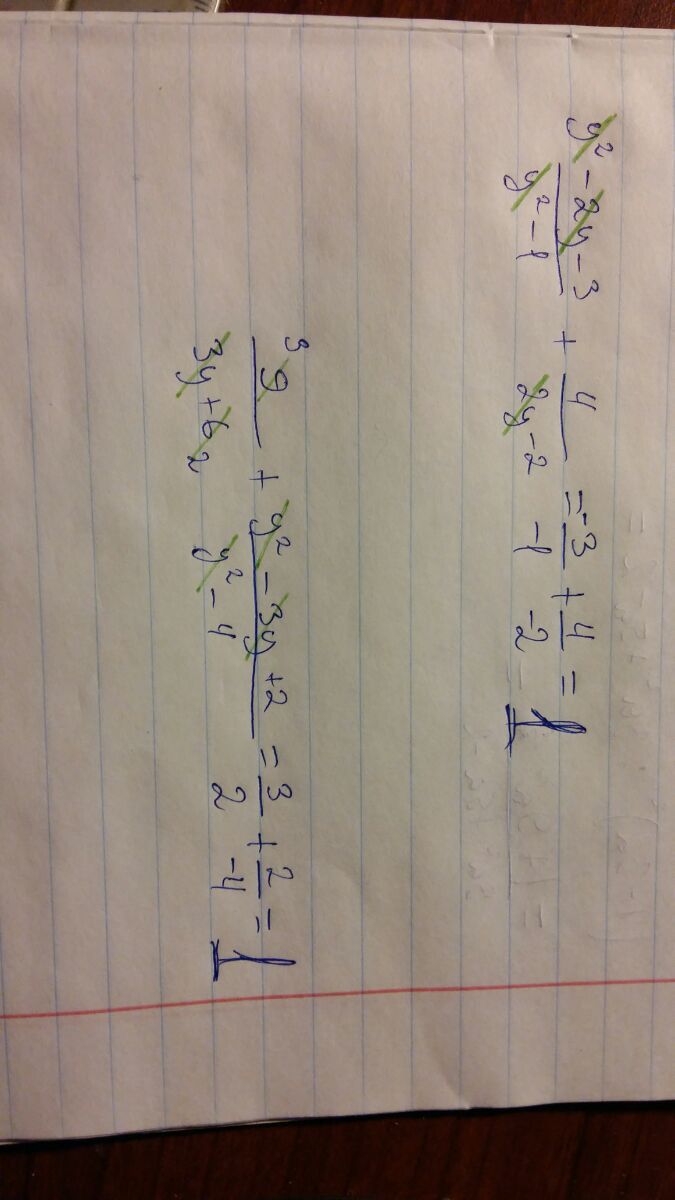 (y² - 2y - 3)/(y² - 1) + 4/(2y - 2) = -3/-1 + 4/-2 = 1
9/(3y + 6) + (y² - 3y + 2)/(y² - 4) = 3/2 + 2/-4 = 1